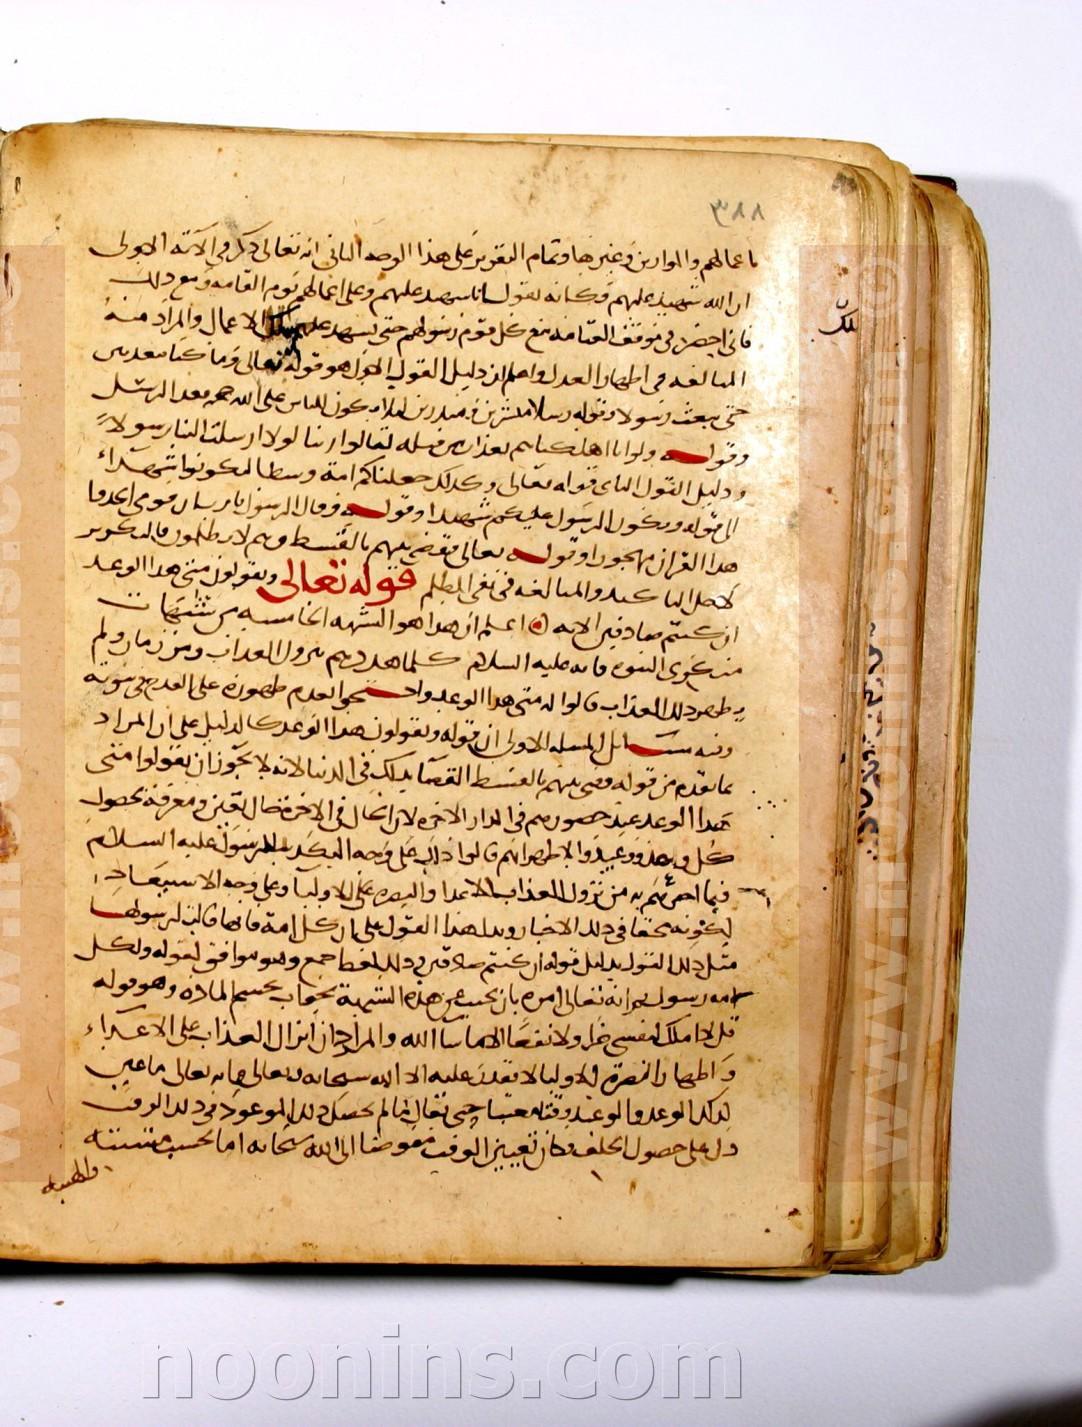 ٨٨٣
باعمالهم والموازين وغيرها وتمام التقرير على هذا الوجه الثاني انه تعالى ذكر في الآية الاولى
ان الله شهيد عليهم فكأنه يقول انا شهيد عليهم وعلى اعمالهم يوم القيامة ومع ذلك
فاني احضر في موقف القيامة مع كل قوم رسولهم حتى يشهد عليهم بتلك الاعمال والمراد منه
تلك
المبالغة في اظهار العدل واعلم ان دليل القول الاول هو قوله تعالى وما كنا معذبين
حتى نبعث رسولا وقوله رسلا مبشرين ومنذرين لئلا يكون للناس على الله حجة بعد الرسل
وقوله ولو انا اهلكناهم بعذاب من قبله لقالوا ربنا لولا ارسلت الينا رسولا
ودليل القول الثاني قوله تعالى وكذلك جعلناكم امة وسطا لتكونوا شهداء
الى قوله ويكون الرسول عليكم شهيدا وقوله وقال الرسول يا رب ان قومي اتخذوا
هذا القران مهجورا وقوله تعالى وقضي بينهم بالقسط وهم لا يظلمون فالتكرير
لاجل التاكيد والمبالغة في نفي الظلم قوله تعالى ويقولون متى هذا الوعد
ان كنتم صادقين الاية اعلم ان هذا هو الشبهة الخامسة من شبهات
منكري النبوة فانه عليه السلام كلما هددهم بنزول العذاب ومر زمان ولم
يظهر ذلك العذاب قالوا له متى هذا الوعد واحتجوا بعدم ظهوره على القدح في نبوته
وفيه مسائل المسئلة الاولى ان قوله ويقولون هذا الوعد كالدليل على ان المراد
مما تقدم من قوله وقضي بينهم بالقسط القضا بذلك في الدنيا لانه لا يجوز ان يقولوا متى
هذا الوعد عند حضورهم في الدار الاخرة لان الحال في الاخرة حال يقين ومعرفة لحصول
كل وعد ووعيد والاظهر انهم قالوا ذلك على وجه التكذيب للرسول عليه السلام
فيما اخبرهم به من نزول العذاب للاعدا والنصرة على للاوليا وعلى وجه الاستبعاد
لكونه محقا في ذلك الاخبار ويدل هذا القول على ان كل امة فانها قالت لرسولها
مثل ذلك القول بدليل قوله ان كنتم صادقين وذلك لفظ جمع وهو موافق لقوله ولكل
امة رسول ثم انه تعالى امره بان يجيب عن هذه الشبهة بجواب يحسم المادة وهو قوله
قل لا املك لنفسي ضرا ولا نفعا الا ما شا الله والمراد ان انزال العذاب على الاعداء
واظهار النصرة للاوليا لا يقدر عليه الا الله سبحانه وتعالى وانه تعالى ما عين
لذلك الوعد والوعيد وقتا معينا حتى يقال لما لم يحصل ذلك الموعود في ذلك الوقت
دل على حصول الخلف فكان تعيين الوقت مفوضا الى الله سبحانه اما بحسب مشيئته
والهيته